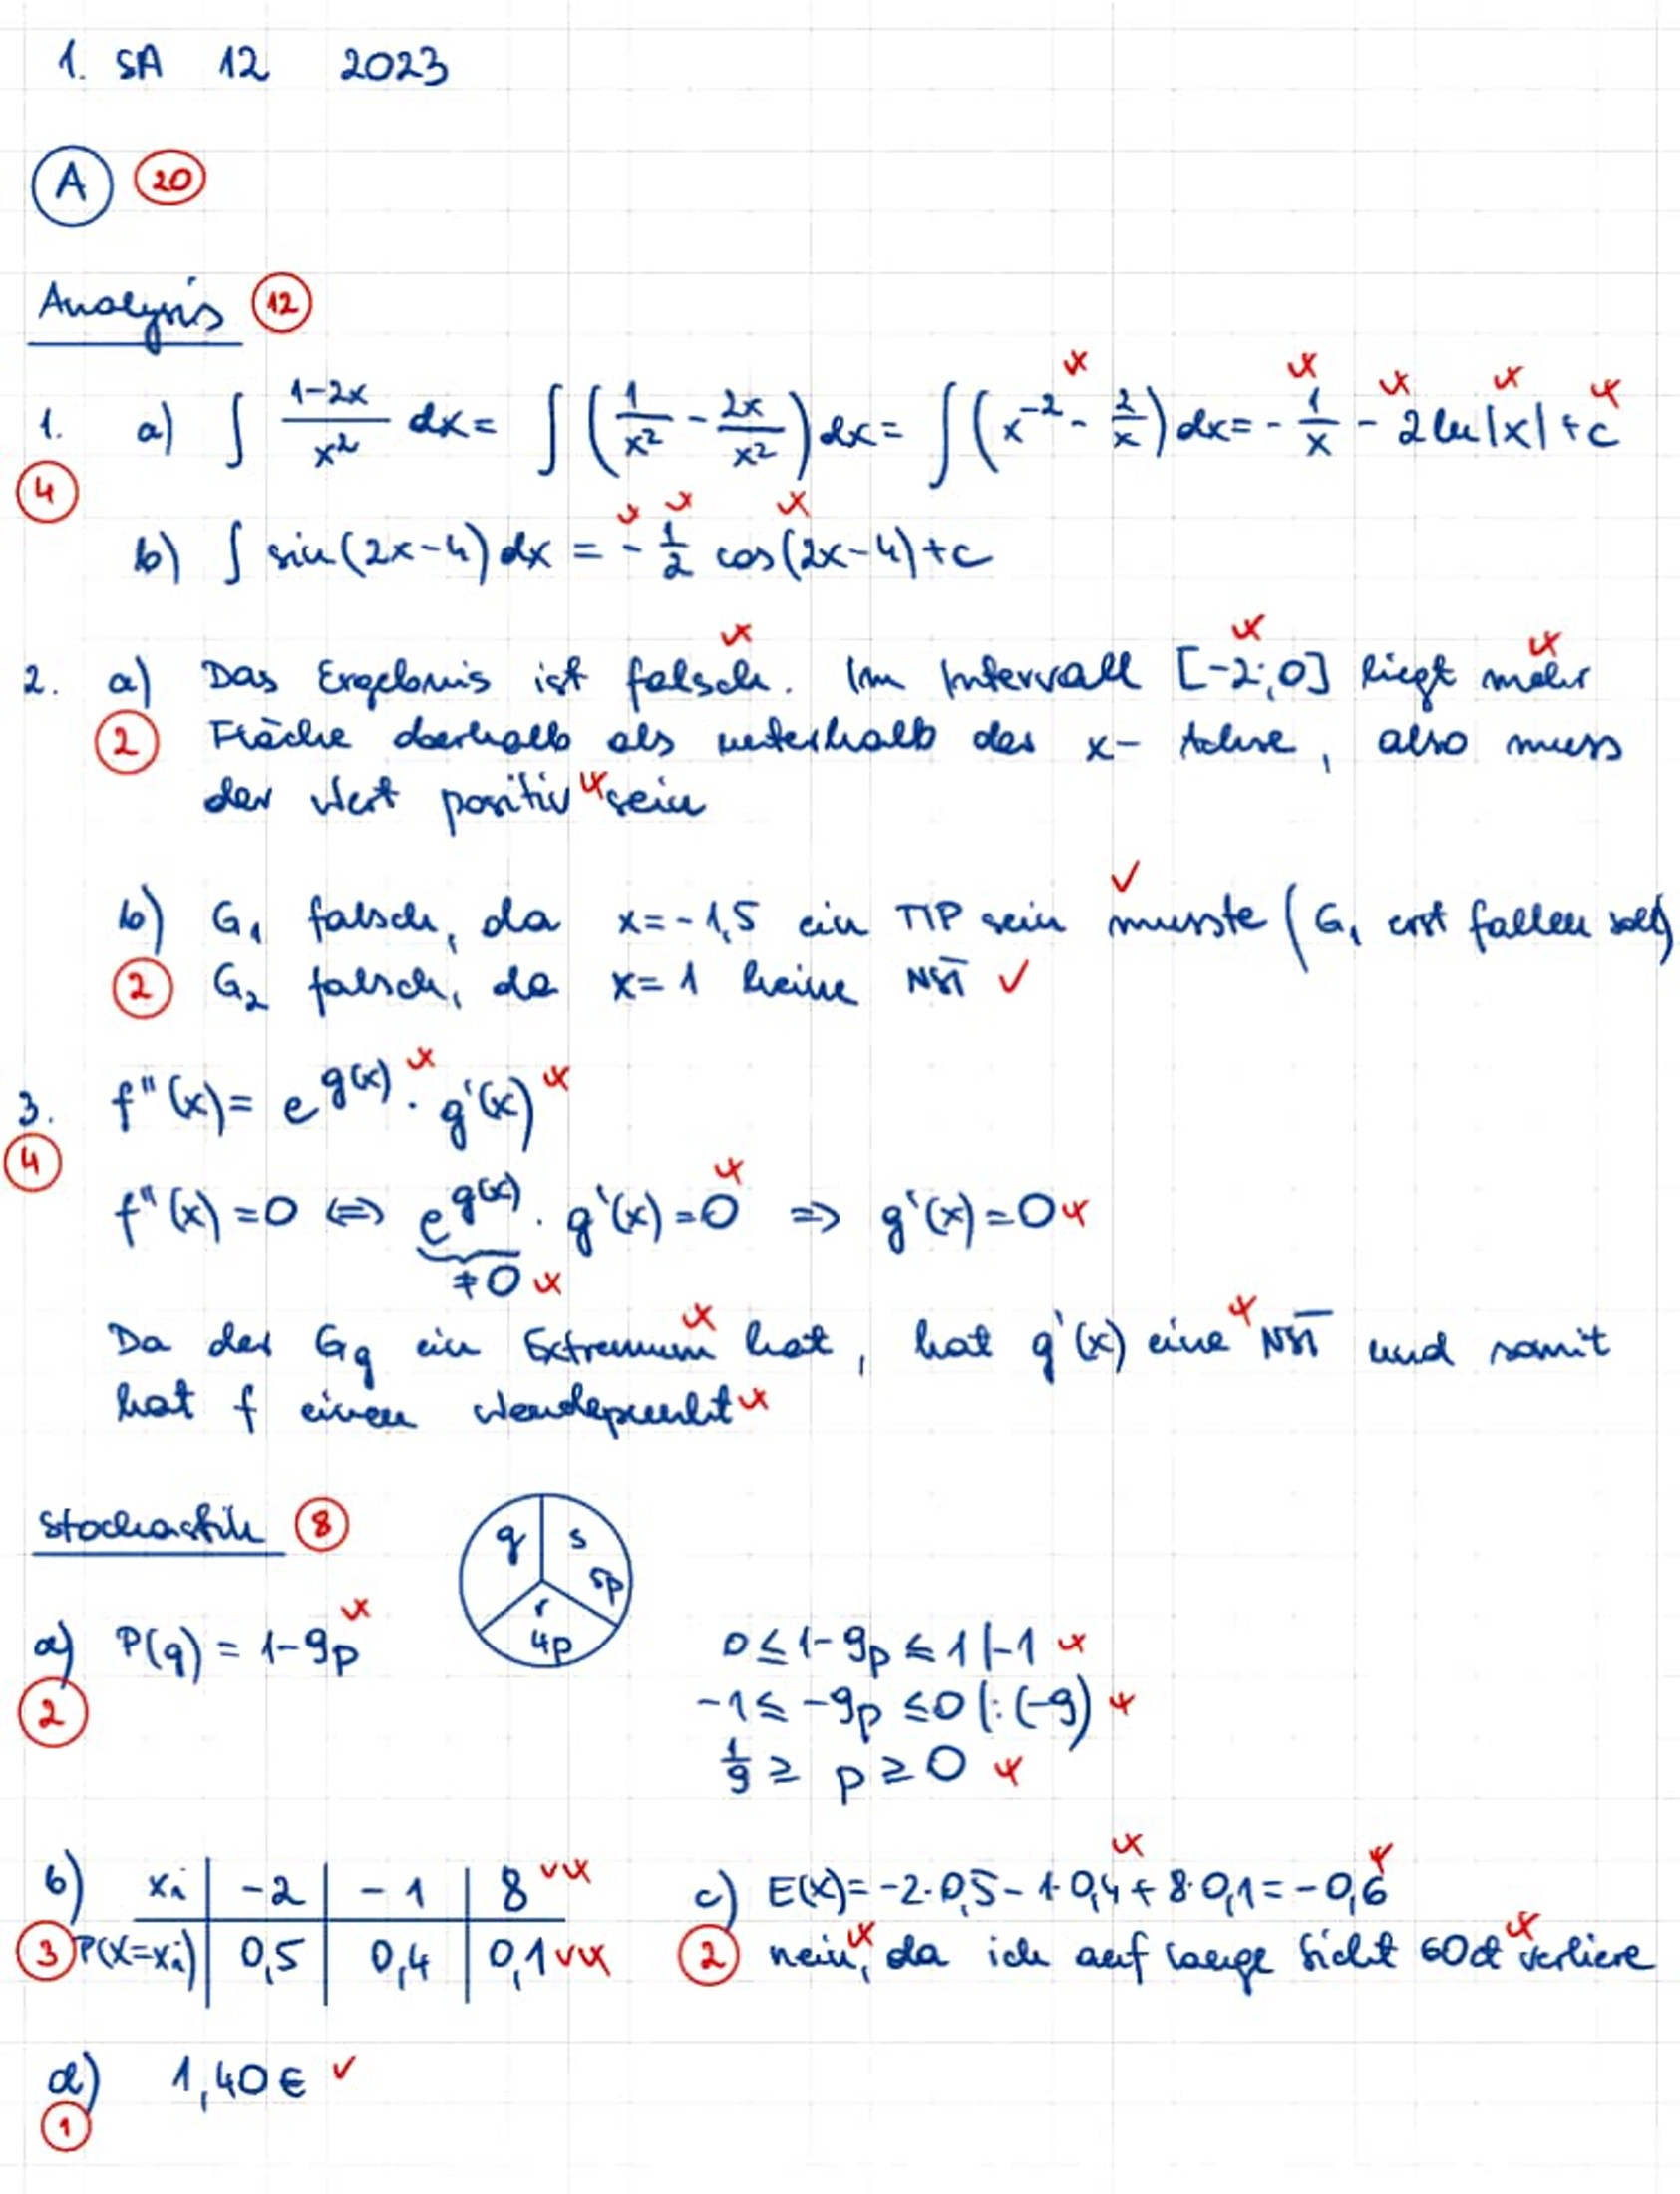 1. SA 12 2023
A 20
Analysis 12
1. a) ∫ (1-2x)/x² dx = ∫ (1/x² - 2x/x²) dx = ∫ (x⁻² - 2/x) dx = - 1/x - 2 ln|x| + c
4
b) ∫ sin(2x-4) dx = - 1/2 cos(2x-4) + c
2. a) Das Ergebnis ist falsch. Im Intervall [-2;0] liegt mehr
2 Fläche oberhalb als unterhalb der x-Achse, also muss
der Wert positiv sein
b) G₁ falsch, da x=-1,5 ein TIP sein musste (G₁ erst fallen soll)
2 G₂ falsch, da x=1 keine NST ✓
3. f''(x) = e^g(x) · g'(x)
4
f''(x)=0 ⇔ e^g(x) · g'(x)=0 ⇒ g'(x)=0
≠0
Da der Gg ein Extremum hat, hat g'(x) eine NST und somit
hat f einen Wendepunkt
Stochastik 8
g s 5p r 4p
a) P(g) = 1-9p
2
0 ≤ 1-9p ≤ 1 |-1
-1 ≤ -9p ≤ 0 |:(-9)
1/9 ≥ p ≥ 0
b) xi | -2 | -1 | 8
3 P(X=xi) | 0,5 | 0,4 | 0,1
c) E(X)=-2·0,5-1·0,4+8·0,1=-0,6
2 nein, da ich auf lange Sicht 60ct verliere
d) 1,40€ ✓
1